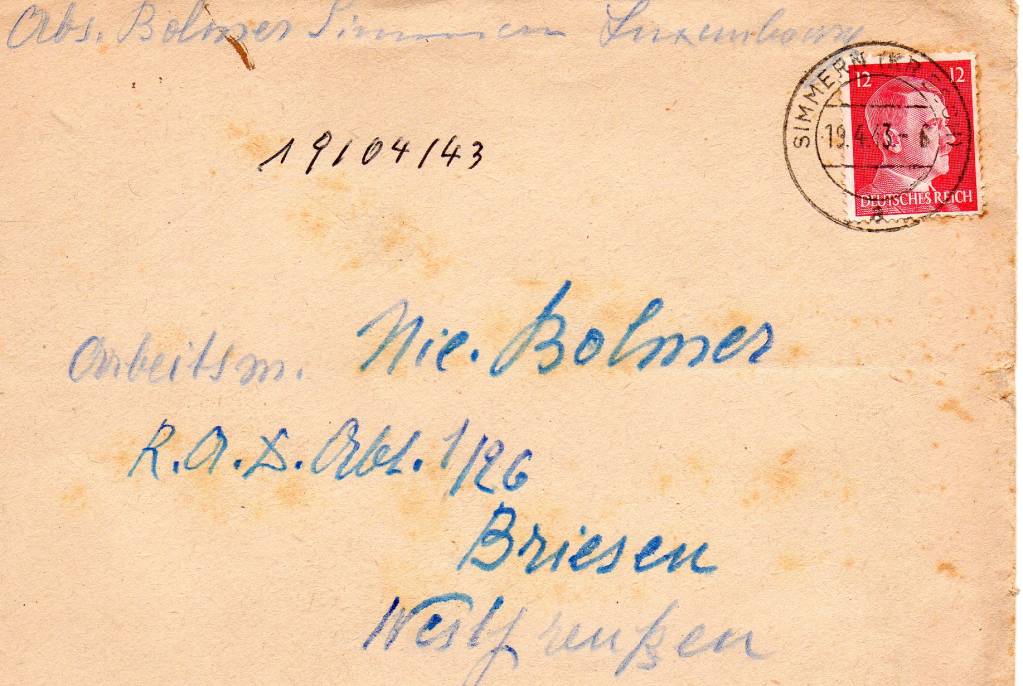 Abs. Bolmer Simmern Luxembourg
12 12
SIMMERN (KR
19.4.43.- 6
a
DEUTSCHES REICH
19/04/43
Arbeitsm. Nic. Bolmer
R.A.D. Abt. 1/26
Briesen
Westpreußen